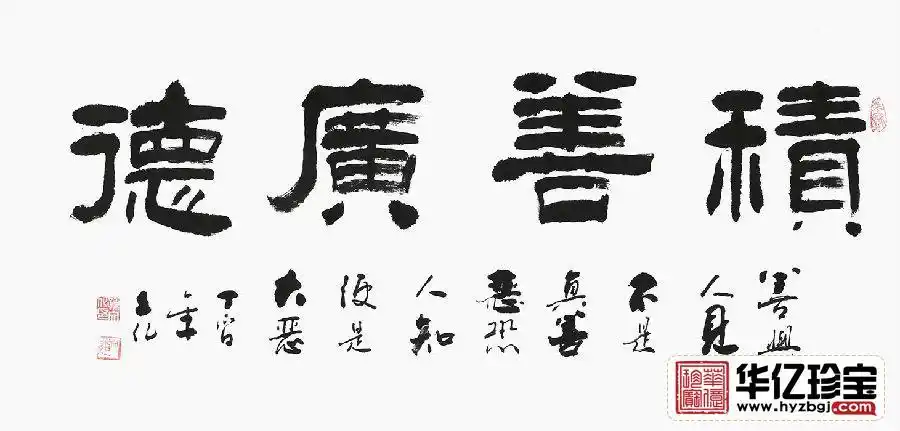 積善廣德
善與
人見
不是
真善
惡恐
人知
便是
大惡
丁酉
年
华亿珍宝
www.hyzbgj.com